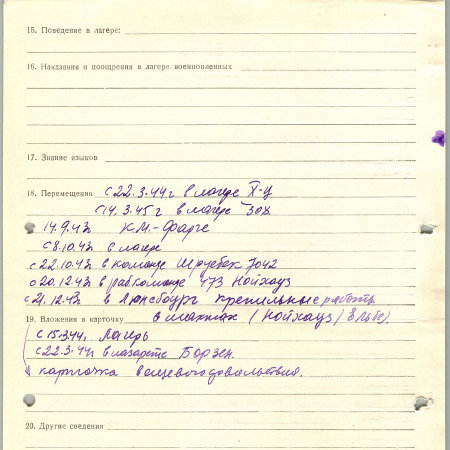 15. Поведение в лагере:
16. Наказания и поощрения в лагере военнопленных
17. Знание языков
18. Перемещения с 22.3.44 г в лагере X-Ц
с 14.3.45 г в лагере
14.9.43 К.М.-Фарге
с 8.10.43 в лагере
с 22.10.43 в команде 7042
с 20.12.43 в рабкоманде 473 Нойхауз
с 21.12.43 в Люнебург работы
19. Вложения в карточку в (Нойхауз/Эльбе).
с 15.3.44 Лагерь
с 22.3.44 в лазарете
карточка вещевого довольствия.
20. Другие сведения